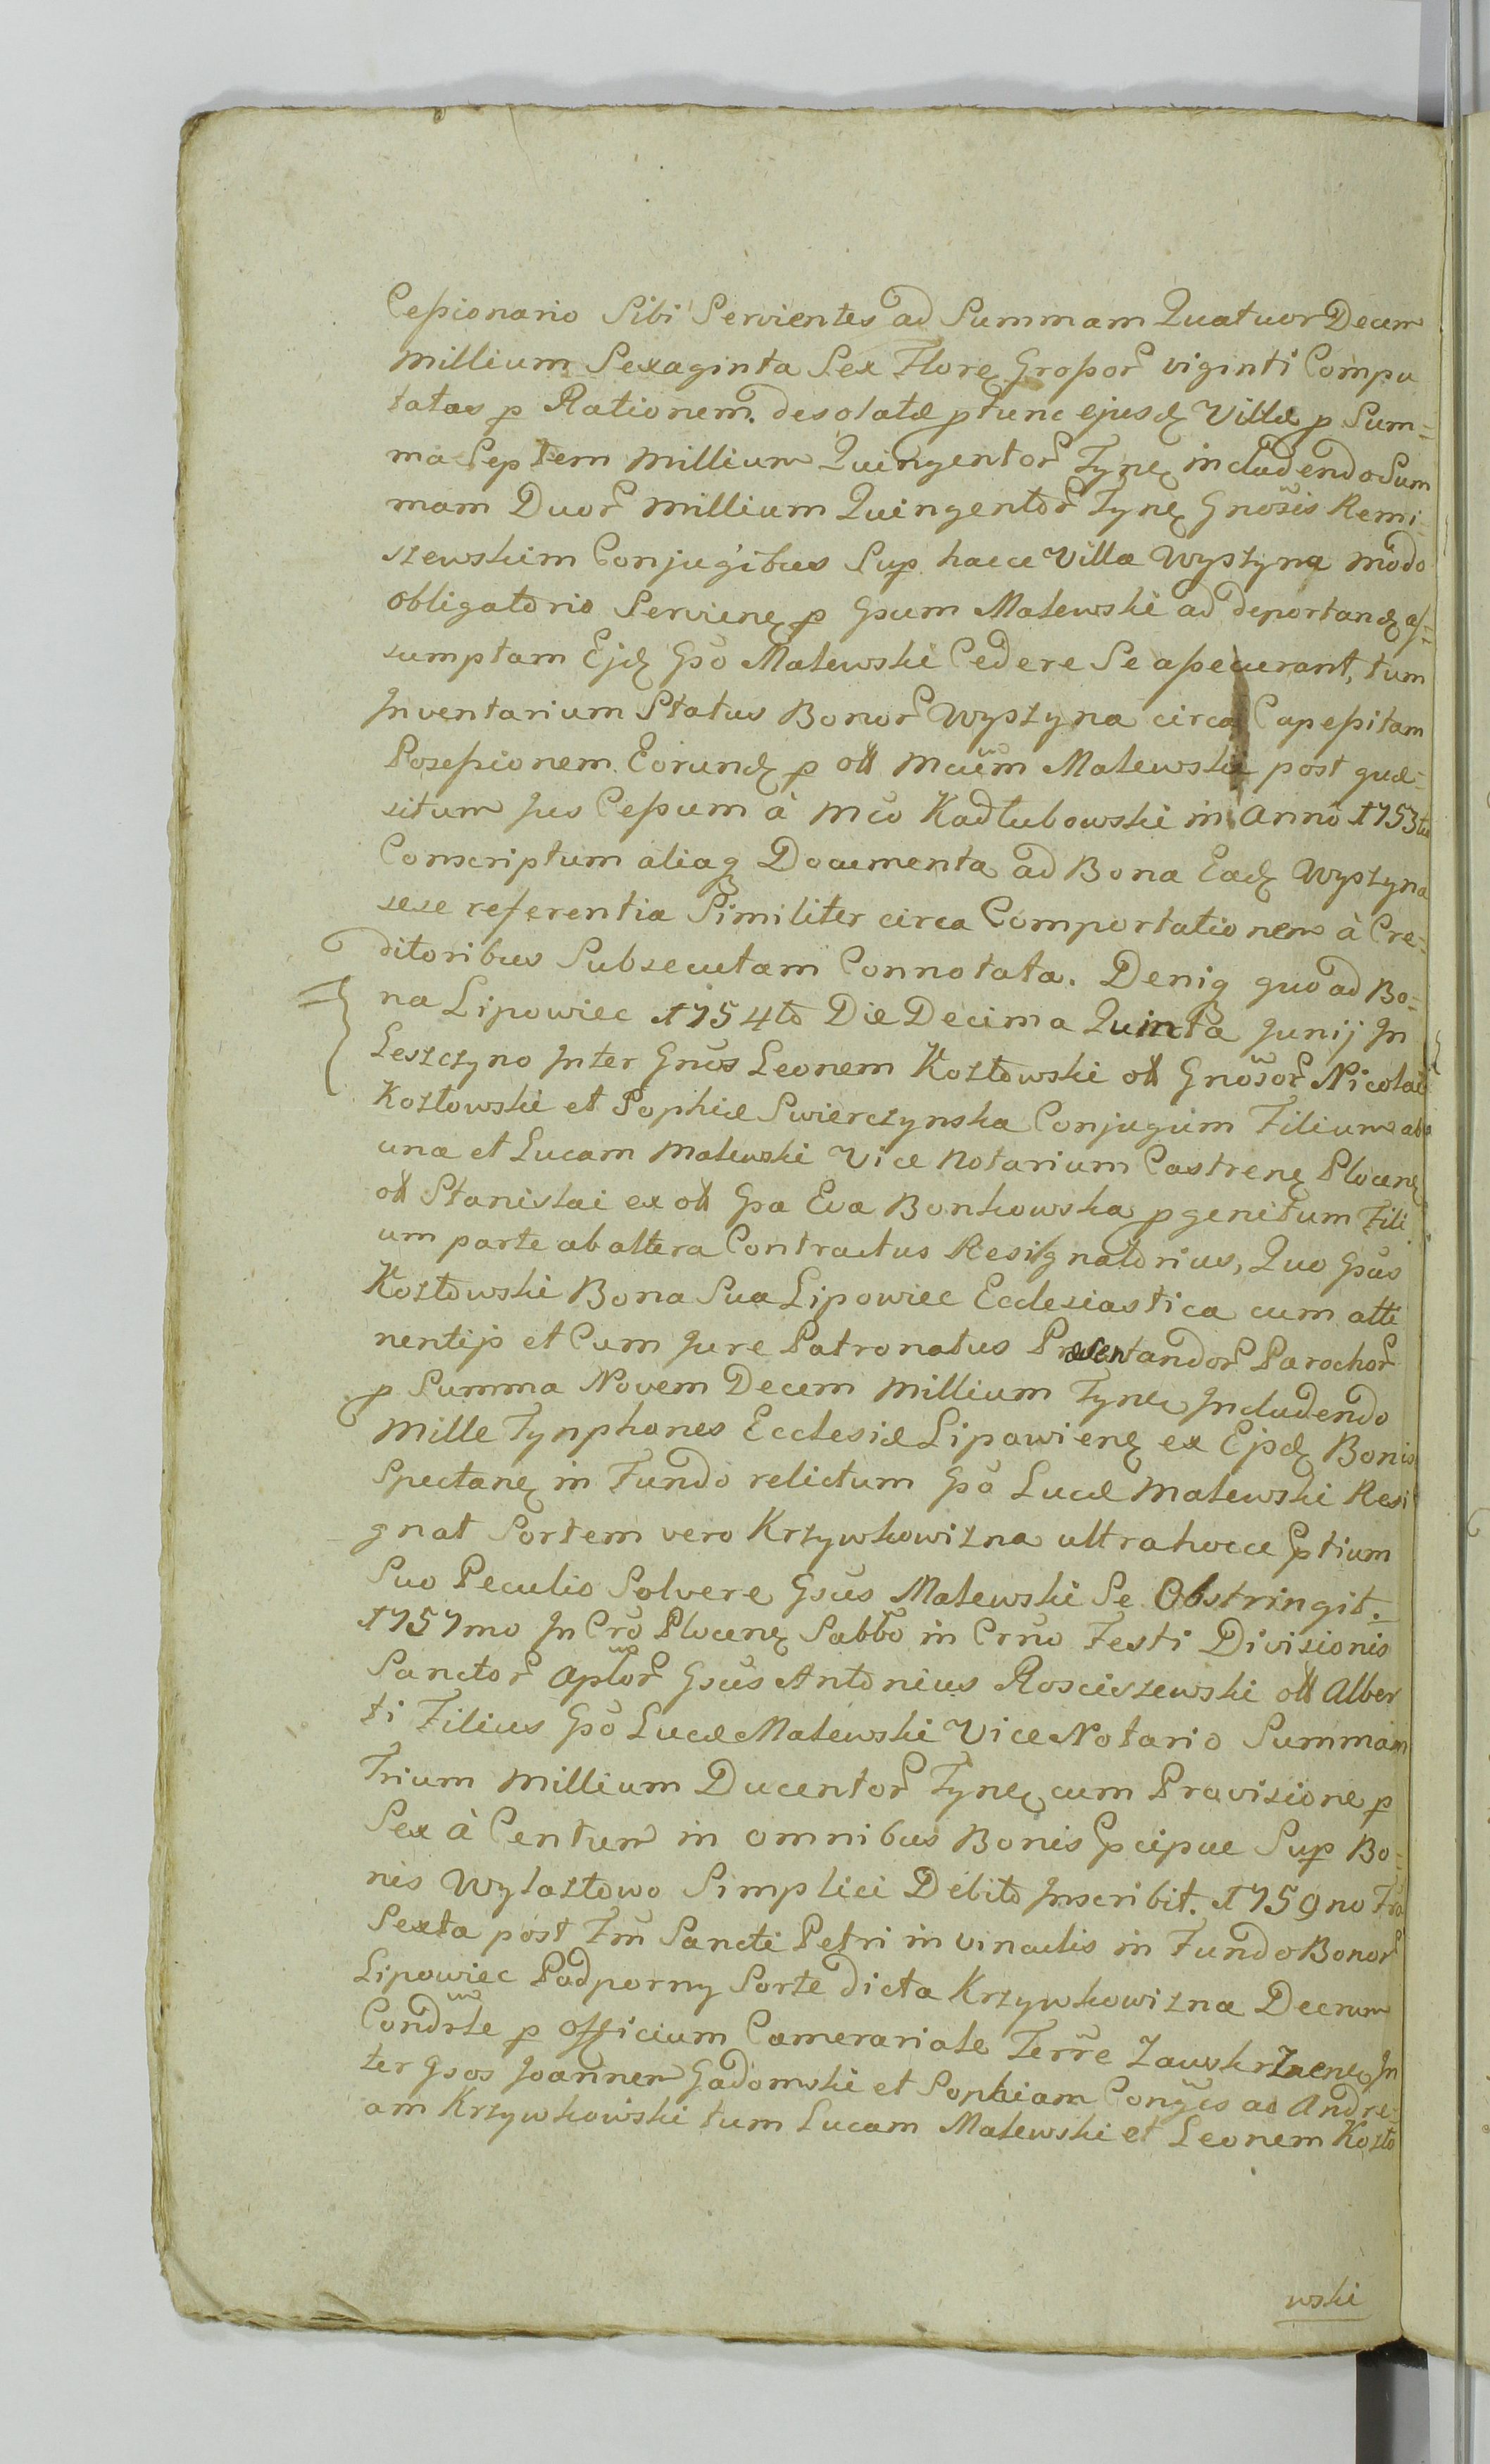 Cessionario Sibi Servientes ad Summam Quatuor Decem
Millium Sexaginta Sex Floreꝫ Grossor̃ viginti Compu
tatas p Rationem desolatæ ptunc ejusdꝫ Villæ p Sum=
ma Septem Millium Quingentor̃ Tyneꝫ includendo Sum
mam Duor̃ Millium Quingentor̃ Tyneꝫ Gnosis Remi=
szewskim Conjugibus Sup haece Villa Wyszyna modo
Obligatorio Servieneꝫ p Gsum Malewski ad deportandꝫ as=
sumptam Ejdꝫ Gso Malewski Cedere Se assecurant, tum
Inventarium Status Bonor̃ Wyszyna circa Capessitam
Possessionem Eorundꝫ p oll Mcum Malewski post quæ=
situm Jus Cessum à Mco Kadłubowski in Anno 1753tio
Conscriptum aliaqꝫ Documenta ad Bona Eadꝫ Wyszyna
sese referentia Similiter circa Comportationem à Cre=
ditoribus Subsecutam Connotata. Deniqꝫ quo ad Bo=
na Lipowiec 1754to Die Decima Quinta Junij In
Leszczyno Inter Gnos Leonem Kozłowski oll Gnosor̃ Nicolai
Kozłowski et Sophiæ Swierczynska Conjugum Filium ab
una et Lucam Malewski Vice Notarium Castreneꝫ Ploceneꝫ
oll Stanislai ex oll Gsa Eva Bonkowska pgenitum Fili
um parte ab altera Contractus Resignatorius, Quo Gsus
Kozłowski Bona Sua Lipowiec Ecclesiastica cum atti
nentijs et Cum Jure Patronatus Præsentandor̃ Parochor̃
p Summa Novem Decem Millium Tyneꝫ Includendo
Mille Tynphones Ecclesiæ Lipowieneꝫ ex Ejsdꝫ Bonis
Spectaneꝫ in Fundo relictum Gso Lucæ Malewski Resi
gnat Sortem vero Krzywkowizna ultra hocce Ptium
Suo Peculio Solvere Gsus Malewski Se Obstringit.
1757mo In Cro Ploceneꝫ Sabbo in Crno Festi Divisionis
Sanctor̃ Aplor̃ Gsus Antonius Rosciszewski oll Alber
ti Filius Gso Lucæ Malewski Vice Notario Summam
Trium Millium Ducentor̃ Tyneꝫ cum Provisione p
Sex à Centum in omnibus Bonis Pcipue Sup Bo=
nis Wylazłowo Simplici Debito Inscribit. 1759no Fra
Sexta post Fm Sancti Petri in vinculis in Fundo Bonor̃
Lipowiec Podporny Sorte dicta Krzywkowizna Decrum
Condrle p Officium Camerariale Terre Zawskrzneneꝫ In
ter Gsos Joannem Gadomski et Sophiam Conges ac Andre=
am Krzywkowski tum Lucam Malewski et Leonem Kozło
wski